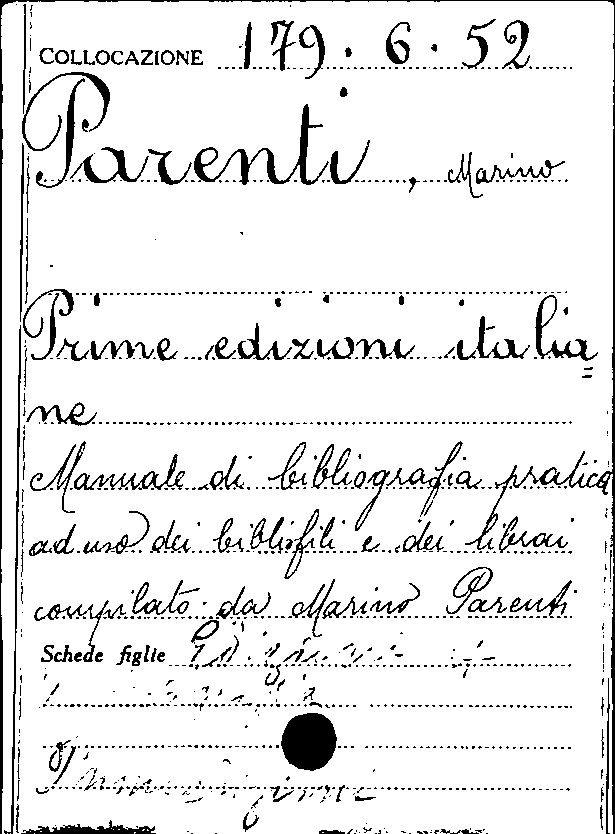 COLLOCAZIONE 179. 6. 52
Parenti, Marino
Prime edizioni italia=
ne
Manuale di bibliografia pratica
ad uso dei bibliofili e dei librai
compilato da Marino Parenti
Schede figlie